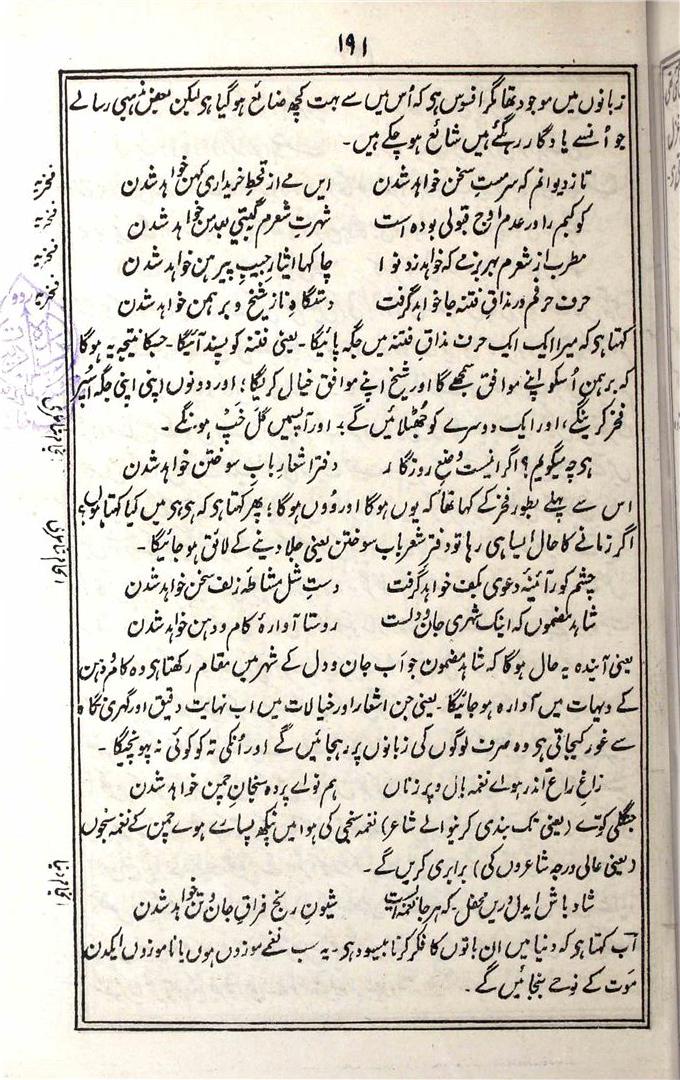 ۱۹۱
زبانوں میں موجود تھا مگر افسوس ہی کہ اُس میں سے بہت کچھ ضائع ہو گیا ہی لیکن بعض مذہبی رسالے
جو اُنسے یادگار رہگئے ہیں شائع ہو چکے ہیں۔
تا ز دیوانم کہ سرمستِ سخن خواہد شدن ایں مے از قحطِ خریداری کہن خواہد شدن
فخریہ
کوکبم را در عدم اوج قبولی بودہ است شہرتِ شعرم گیتی بعد من خواہد شدن
فخریہ
مطرب از شعرم بہر بزمے کہ خواہد زد نوا چاکہا ایثار جیبِ پیرہن خواہد شدن
فخریہ
حرف حرفم در مذاقِ فتنہ جا خواہد گرفت دستگاہِ نازِ شیخ و برہمن خواہد شدن
فخریہ
کہتا ہی کہ میرا ایک ایک حرف مذاقِ فتنہ میں جگہ پائیگا۔ یعنی فتنہ کو پسند آئیگا۔ جسکا نتیجہ یہ ہوگا
کہ برہمن اُسکو اپنے موافق سمجھے گا اور شیخ اپنے موافق خیال کریگا؛ اور دونوں اپنی اپنی جگہ اُسپر
فخر کرینگے، اور ایک دوسرے کو جھٹلائیں گے؛ اور آپسمیں گل خپ ہونگے۔
ہی چہ میگویم؟ اگر اینست وضعِ روزگار دفترِ اشعار بابِ سوختن خواہد شدن
اس سے پہلے بطور فخر کے کہا تھا کہ یوں ہوگا اور ووں ہوگا؛ پھر کہتا ہی کہ ہی ہی میں کیا کہتا ہوں؟
اگر زمانے کا حال ایسا ہی رہا تو دفترِ شعر باب سوختن یعنی جلا دینے کے لائق ہو جائیگا۔
چشم کور آئینۂ دعوی بکف خواہد گرفت دستِ شل مشاطۂ زلف سخن خواہد شدن
شاہد مضموں کہ اینک شہری جان و دلست روستا آوارۂ کام و دہن خواہد شدن
یعنی آیندہ یہ حال ہوگا کہ شاہد مضمون جو اَب جان و دل کے شہر میں مقام رکھتا ہی وہ کام و دہن
کے دیہات میں آوارہ ہو جائیگا۔ یعنی جن اشعار اور خیالات میں اب نہایت دقیق اور گہری نگاہ
سے غور کیجاتی ہی وہ صرف لوگوں کی زبانوں پر رہجائیں گے اور اُنکی تہ کو کوئی نہ پہونچیگا۔
زاغِ راغ اندر ہوائے نغمہ بال و پر زناں ہم نوائے پردہ سنجانِ چمن خواہد شدن
جنگلی کوّے (یعنی تک بندی کرنیوالے شاعر) نغمہ سنجی کی ہوا میں پنکھ پسارے ہوے چمن کے نغمہ سنجوں
(یعنی عالی درجہ شاعروں کی) برابری کریں گے۔
شاد باش ایدل دریں محفل۔ کہ ہر جا نغمہ ایست شیونِ رنج فراقِ جان و تن خواہد شدن
اَب کہتا ہی کہ دنیا میں ان باتوں کا فکر کرنا بیسود ہی۔ یہ سب نغمے موزوں ہوں یا ناموزوں ایکدن
موت کے نوحے بنجائیں گے۔